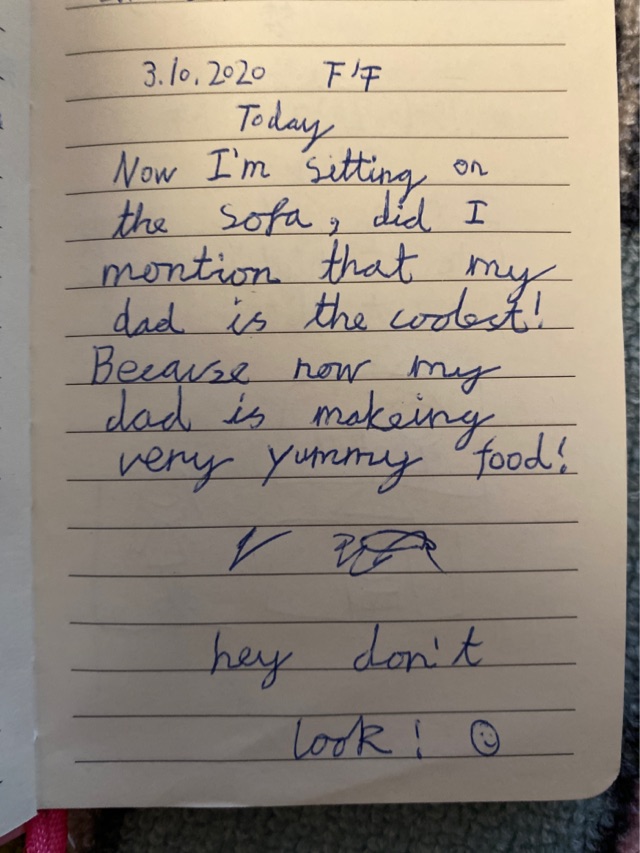 3.10.2020 F'F
Today
Now I'm sitting on
the sofa, did I
montion that my
dad is the coolest!
Because now my
dad is makeing
very yummy food!
hey don't
look! ☺